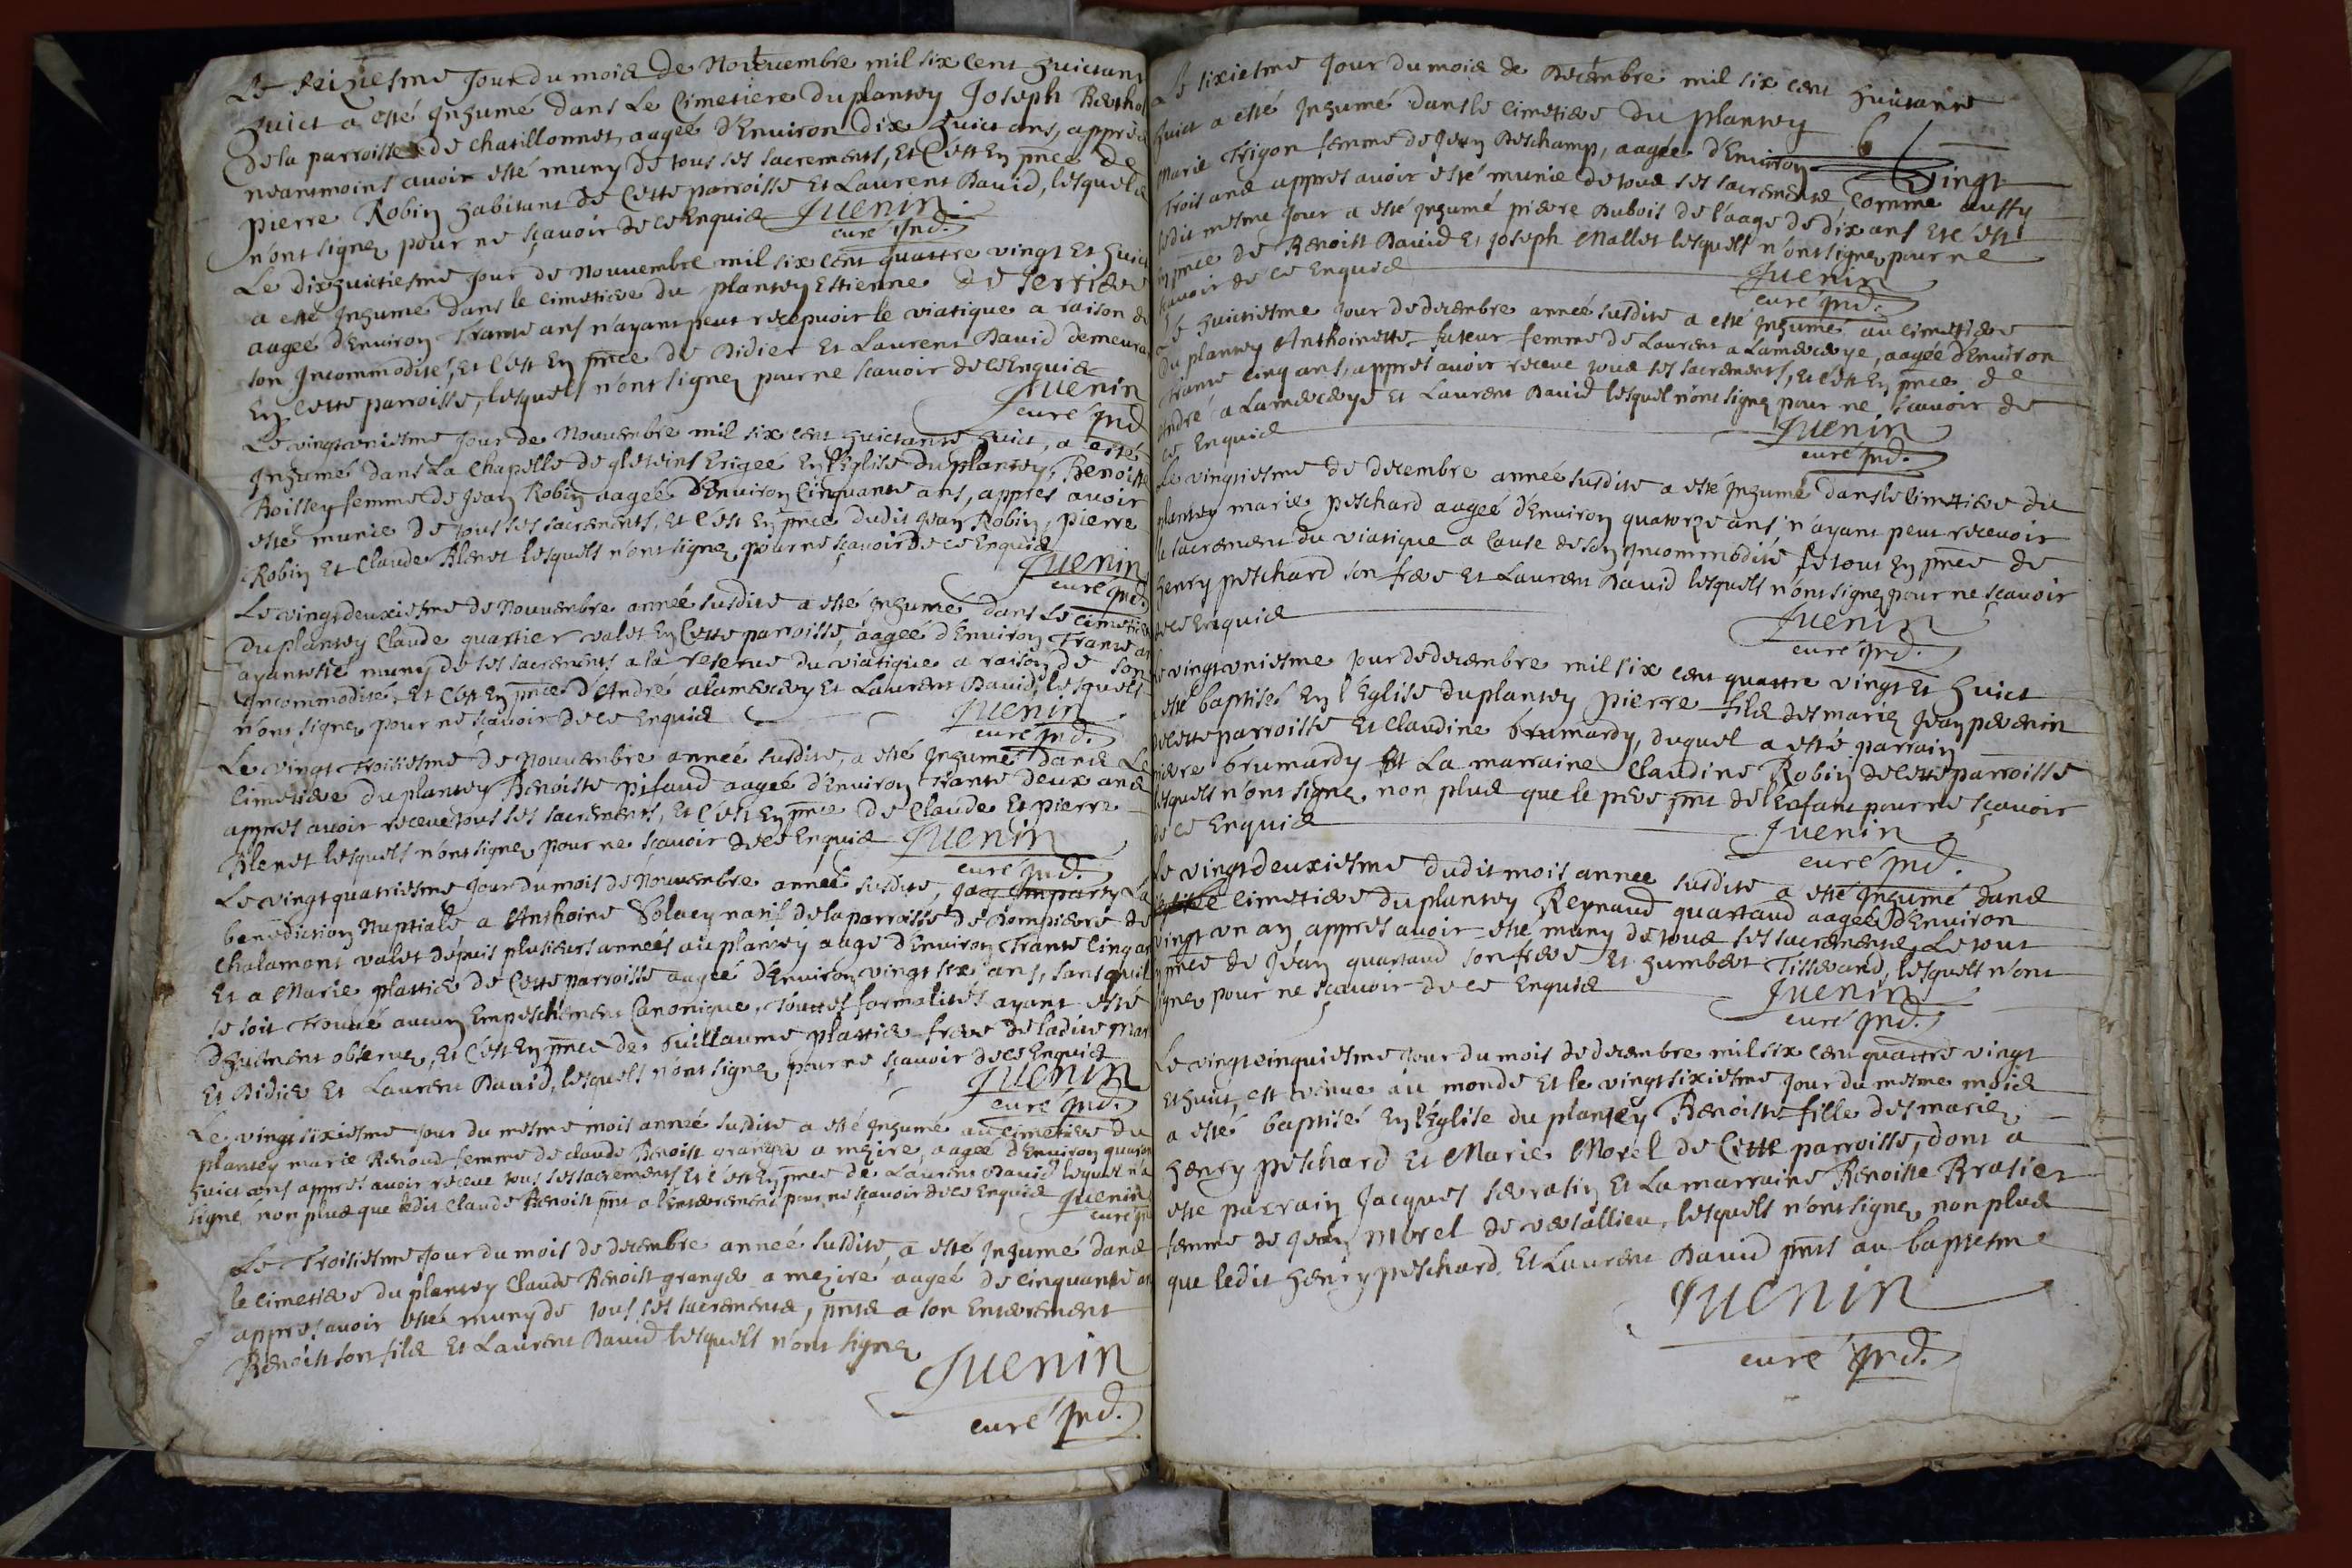 Le seiziesme Jour du mois de Novuembre mil six cent huictant
huict a esté Inhumé dans Le Cimetiere du plantey Joseph Berthol
de la parroisse de chatillonnet, aagée d'Environ dix huict ans, apprès
neantmoins avoir esté muny de tous ses sacrements, Et C'est En pnce de
pierre Robin habitant de Cette parroisse Et Laurent David, lesquels
n'ont signez pour ne sçavoir de ce Enquis Juenin
curé Ind.
Le dixhuictiesme Jour de Nouuembre mil six cent quattre vingt Et huict
a esté Inhumé dans le cimetiere du plantey Estienne
aagée d'Environ trante ans n'ayant peut recepuoir le viatique a raison de
son Incommodité, Et C'est En pnce de Didier Et Laurent David demeura
En Cette parroisse, lesquels n'ont signez pour ne scavoir de ce Enquis
Juenin
curé Ind
Le vingtvniesme Jour de Nouuembre mil six cent huictante huict, a esté
Inhumé dans La Chapelle de gleteins Erigée En l'Eglise du plantey, Benoiste
Roissey femme de Jean Robin aagée d'Environ Cinquante ans, appres avoir
esté munie de tous ses sacrements, Et C'est En pnce dudit Jean Robin, pierre
Robin Et Claude Blenet lesquels n'ont signez pour ne sçavoir de ce Enquis
Juenin
curé Ind.
Le vingtdeuxiesme de Nouuembre année susdite a esté Inhumé dans Le cimetiere
du plantey Claude quartier valet En Cette parroisse, aagée d'Environ Trante an
ayant esté muny de ses sacrements a la reserue du viatique a raison de son
Incommodité, Et C'est En pnce d'André alamercery Et Laurent David, lesquels
n'ont signez pour ne sçavoir de ce Enquis Juenin
curé Ind.
Le vingt troisiesme de Nouuembre année susdite, a esté Inhumé dans Le
Cimetiere du plantey Benoiste pifaud aagée d'Environ trante deux ans
appres avoir receue tous ses sacrements, Et C'est En pnce De Claude Et pierre
Blenet lesquels n'ont signez pour ne sçavoir de ce Enquis Juenin
curé Ind.
Le vingtquatriesme Jour du mois de Nouuembre année susdite, Jay Imparty La
benediction Nuptiale a Anthoine Volaey natif de la parroisse de Dompiere de
Chalamont valet depuis plusieurs années au plantey aagé d'Environ Trante Cinq an
Et a Marie plattier de Cette parroisse aagée d'Environ vingt six ans, sans qu'il
se soit trouué aucun Empeschement Canonique, toutes formalités ayant esté
dhuement obseruez, Et C'est En pnce de Guillaume plattier frere de ladite Mar
Et Didier Et Laurent David, lesquels n'ont signez pour ne sçavoir de ce Enquis
Juenin
curé Ind.
Le vingt sixiesme Jour du mesme mois année susdite a esté Inhumé au cimetiere du
plantey marie Renoud femme de claude Benoist granger a mezire, aagée d'Environ quaran
huict ans appres avoir receue tous ses sacrements Et C'est En pnce de Laurent David lequel n'a
signe, non plus que ledit Claude Benoist pnt a l'enterrement pour ne sçavoir de ce Enquis Juenin
curé Ind
Le Troisiesme Jour du mois de decembre année susdite, a esté Inhumé dans
le cimetiere du plantey Claude Benoist granger a meziré aagée de cinquante an
appres avoir esté muny de tous ses sacrements, pnts a son Enterrement
Benoist son fils Et Laurent David lesquels n'ont signez
Juenin
curé Ind.
Le sixiesme Jour du mois de Decembre mil six cent huictante
huict a esté Inhumé dans le cimetiere du plantey
Marie Trigon femme de Jean Deschamp, aagée d'Environ vingt
trois ans appres avoir esté munie de tous ses sacrements, Comme aussy
ledit mesme Jour a esté Inhumé piere Dubois de l'aage de dix ans Et C'est
En pnce de Benoist David Et Joseph Mallet lesquels n'ont signez pour ne
sçavoir de ce Enquis Juenin
curé Ind.
Le huictiesme Jour de decembre année susdite a esté Inhumé au cimetiere
du plantey Anthoinette futeur femme de Laurent a Lamercerye, aagée d'Environ
trante cinq ans, appres avoir receue tous ses sacrements, Et C'est En pnce de
André a Lamercerye Et Laurent David lesquel n'ont signez pour ne sçavoir de
ce Enquis Juenin
curé Ind.
Le vingtiesme de decembre année susdite a esté Inhumé dans le cimetiere du
plantey marie peschard aagée d'Environ quatorze ans n'ayant peut recevoir
le sacrement du viatique a Cause de son Incommodité le tout En pnce de
henry peschard son frere Et Laurent David lesquels n'ont signez pour ne sçavoir
de ce Enquis
Juenin
curé Ind.
Le vingtvniesme Jour de decembre mil six cent quattre vingt Et huict
a esté baptisé En l'Eglise du plantey pierre fils des mariez Jean pevenin
de cette parroisse Et Claudine brumardy, duquel a esté parrain
piere brumardy Et La marraine Claudine Robin de cette parroisse
lesquels n'ont signez non plus que le pere pnt de l'Enfant pour ne sçavoir
de ce Enquis Juenin
curé Ind.
Le vingtdeuxiesme dudit mois année susdite a esté Inhumé dans
le cimetiere du plantey Reynaud quartaud aagée d'Environ
vingt vn an appres avoir esté muny de tous ses sacrements, Le tout
En pnce de Jean quartaud son frere Et humbert Tisserand, lesquels n'ont
signez pour ne sçavoir de ce Enquis Juenin
curé Ind.
Le vingtcinquiesme Jour du mois de decembre mil six cent quattre vingt
Et huict, est venue au monde Et le vingtsixiesme Jour du mesme mois
a esté baptisé En l'Eglise du plantey Benoiste fille des mariez
henry peschard Et Marie Morel de Cette parroisse, dont a
esté parrain Jacques serrasin Et La marraine Benoiste Brasier
femme de Jean Morel de versallieu, lesquels n'ont signez non plus
que ledit henry peschard Et Laurent David pnts au baptesme
Juenin
curé Ind.